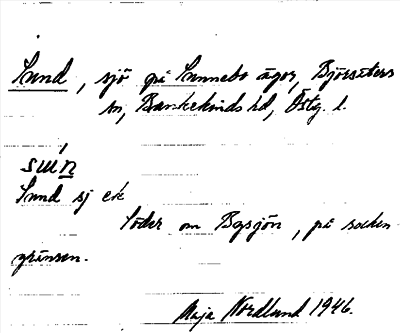 Sund, sjö på Sunnebo ägor, Björsäters
sn, Bankekinds hd, Östg. l.
sɯ́n
Sund sj ek
Söder om Bysjön, på socken
gränsen.
Maja Nordlund 1946.